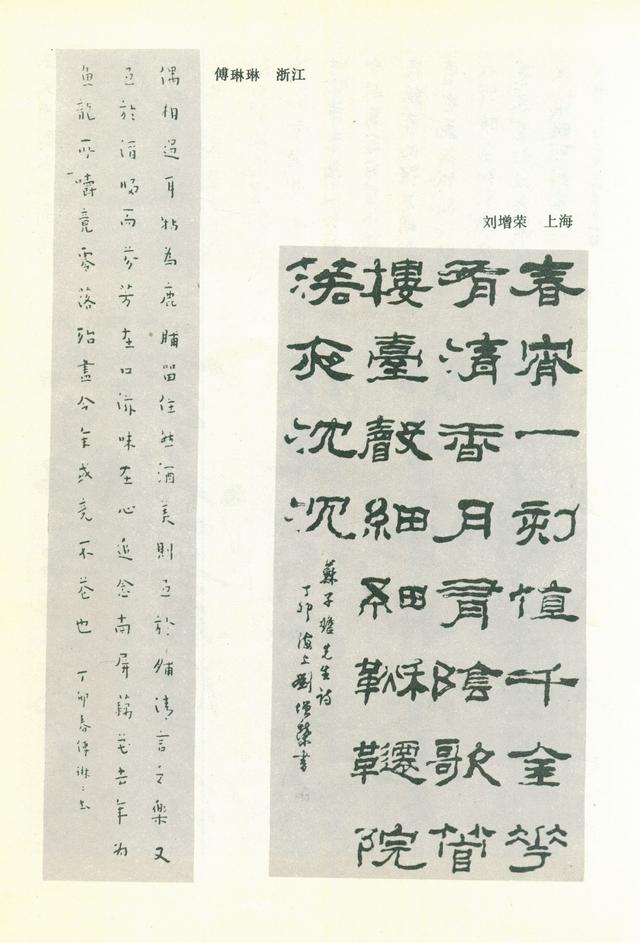 傅琳琳 浙江
偶相過耳為鹿脯留住酒美則至於清言之樂又
至於酒而芬芳在口滋味在心追念南屏藕花去年為
魚龍所嚼竟零落殆盡今年或竟不花也 丁卯春傅琳〻書
刘增荣 上海
春宵一刻值千金花
有清香月有陰歌管
樓臺聲細細鞦韆院
落夜沈沈
蘇子瞻先生詩
丁卯海上劉增榮書